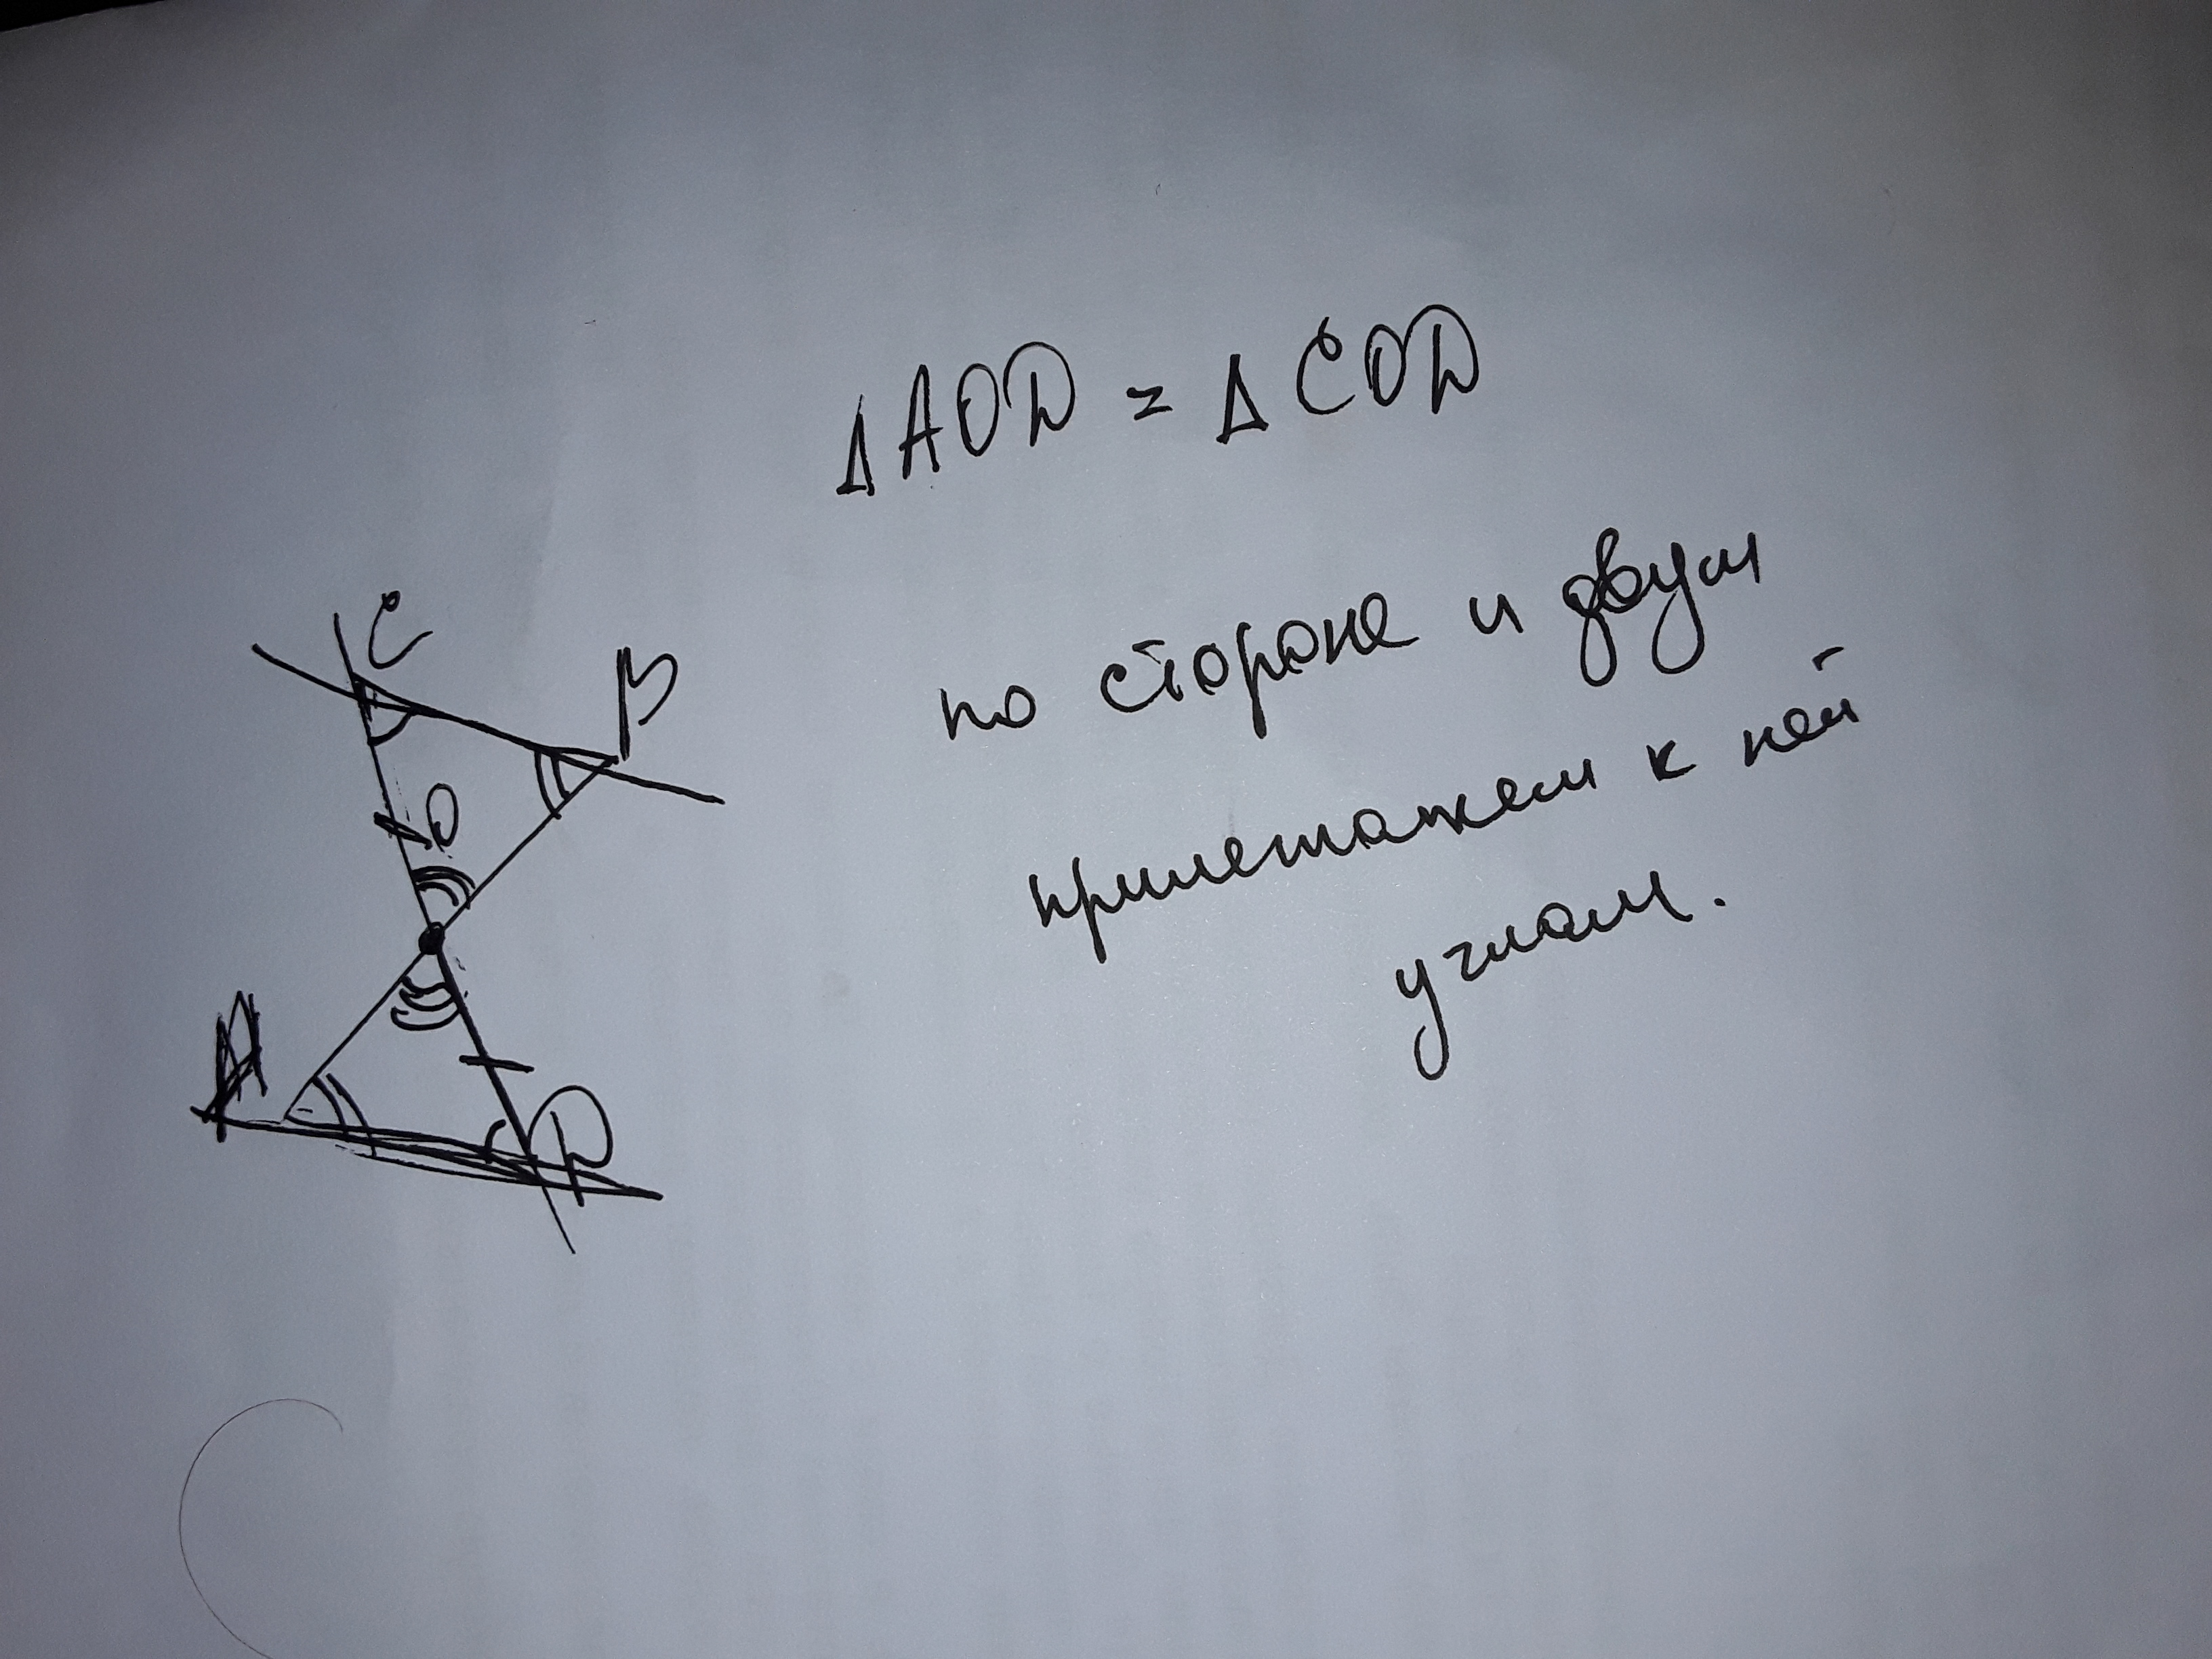 ΔAOD = ΔCOD
по стороне и двум
прилетажем к ней
углам.
C
B
O
A
D